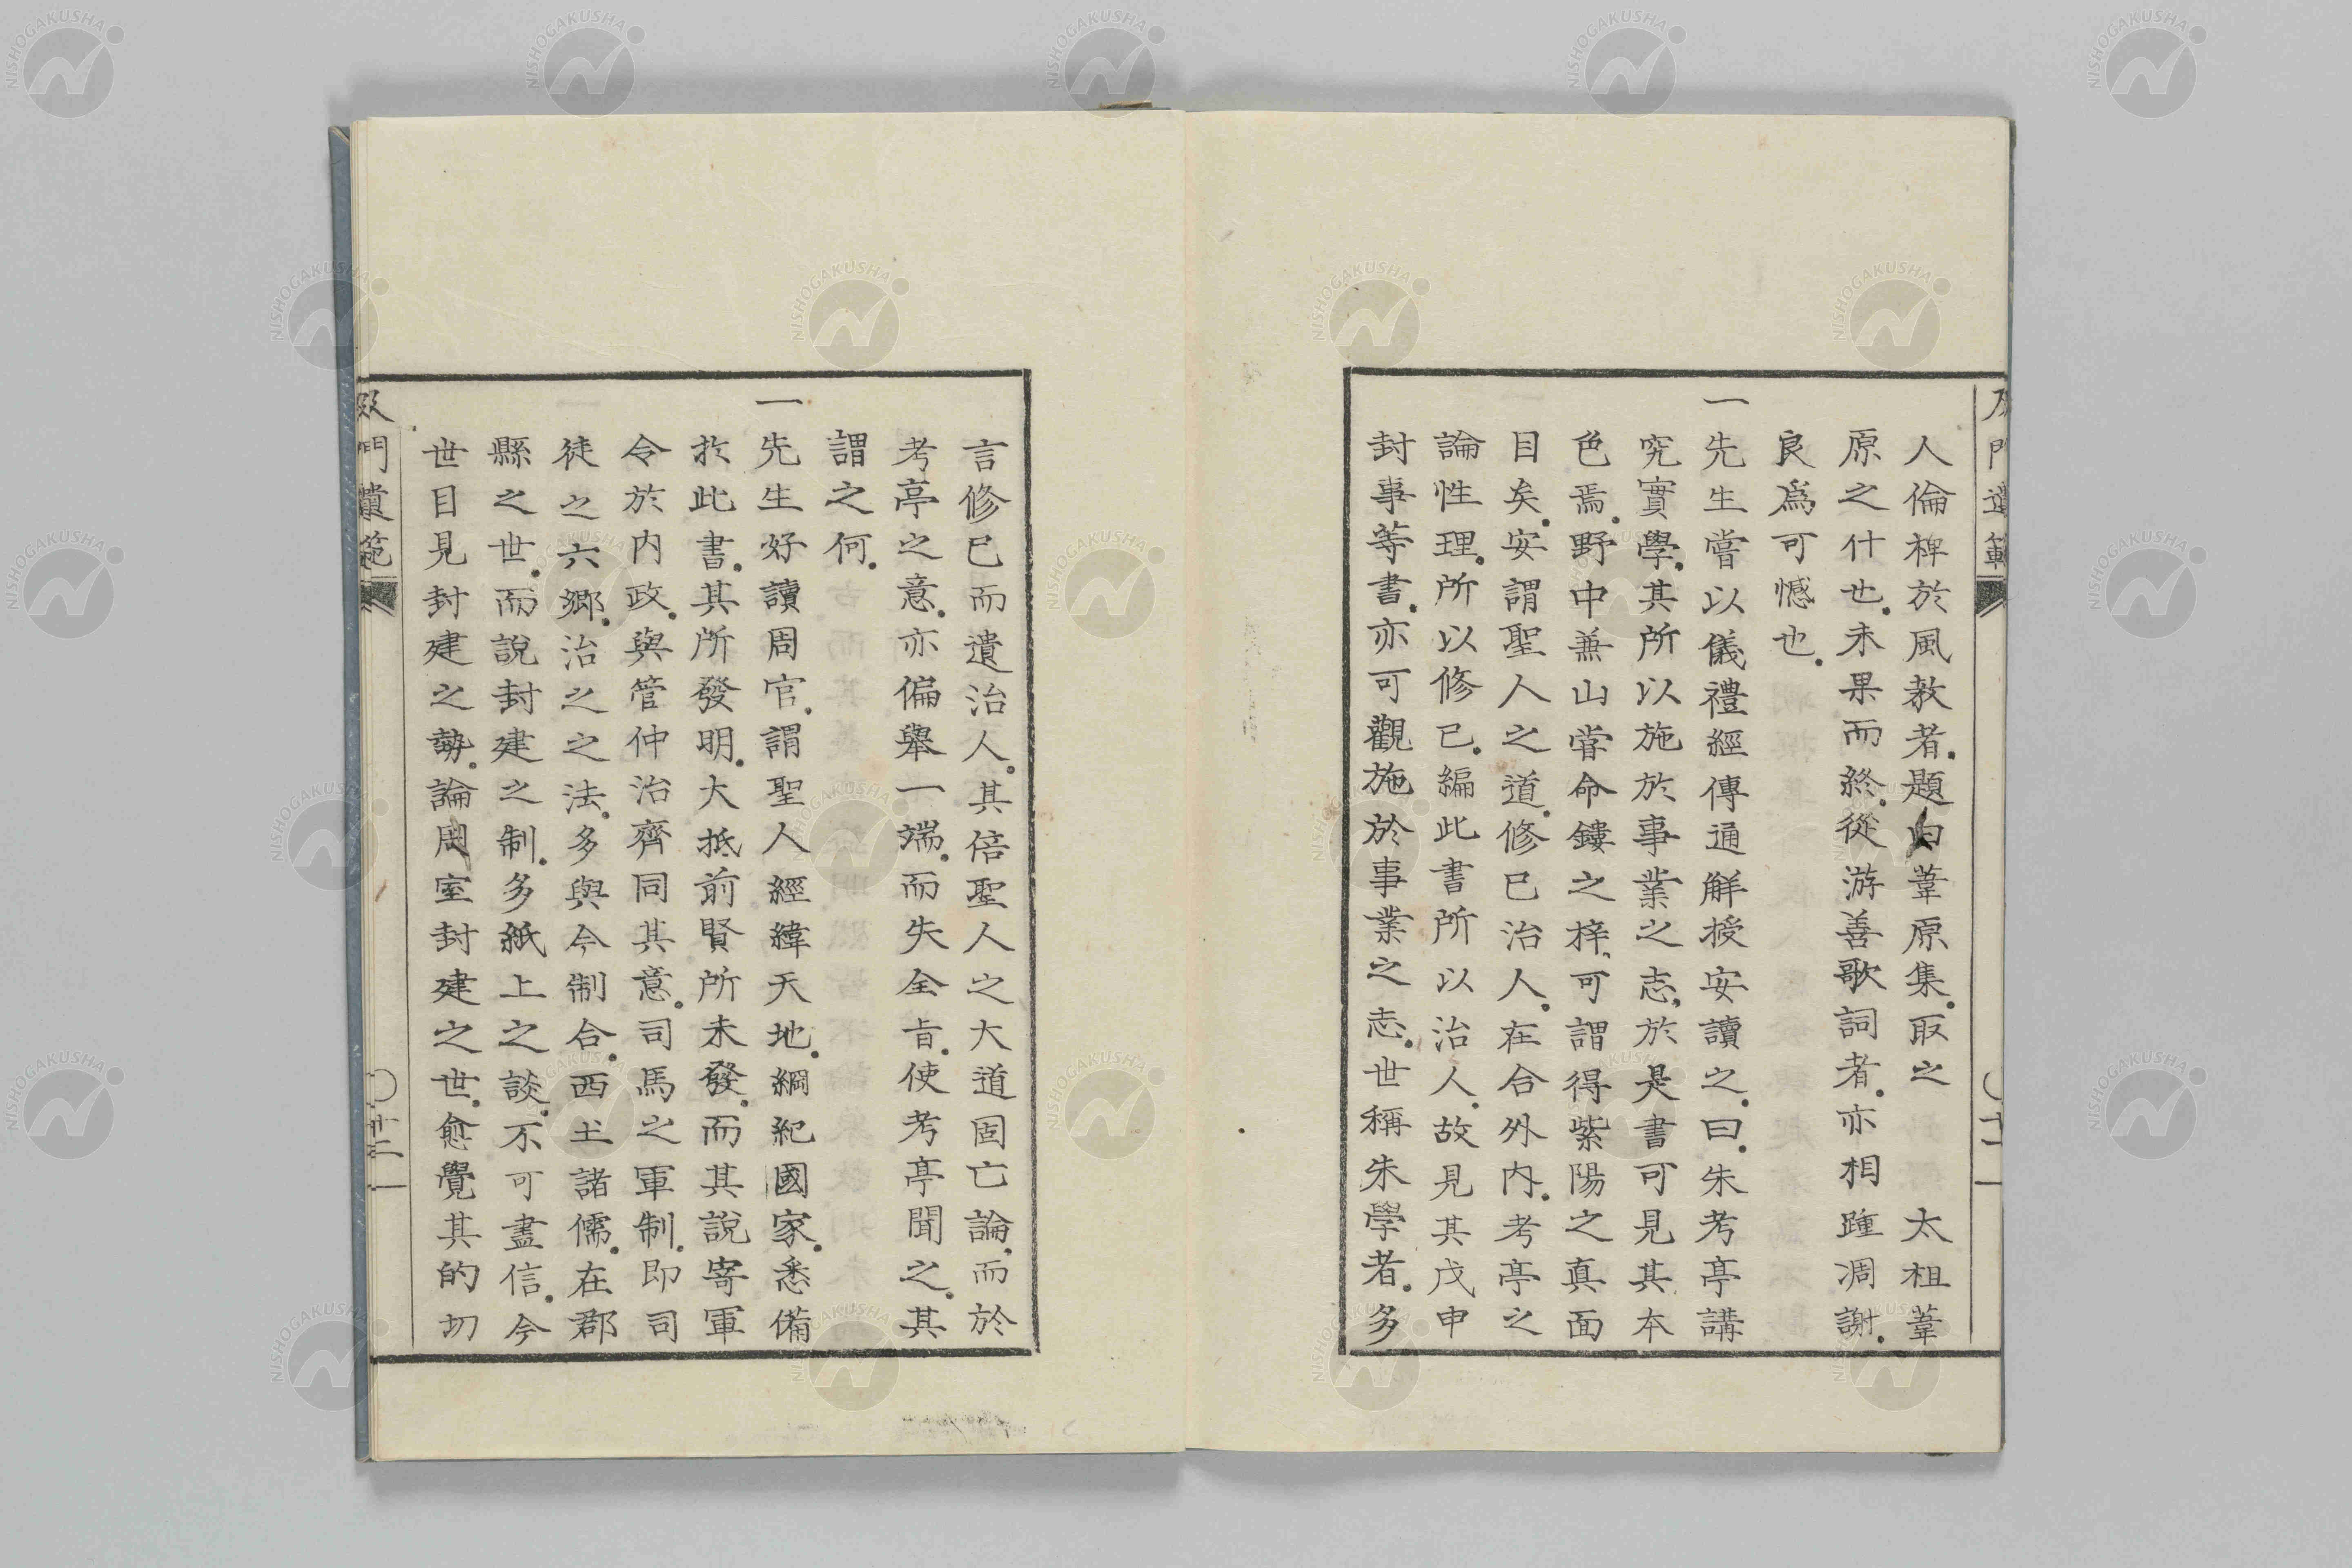 人倫裨於風教者。題曰葦原集。取之　太祖葦
原之什也。未果而終。從游善歌詞者。亦相踵凋謝。
良爲可憾也。
一先生嘗以儀禮經傳通解授安讀之。曰。朱考亭講
究實學。其所以施於事業之志。於是書可見其本
色焉。野中兼山嘗命鏤之梓。可謂得紫陽之真面
目矣。安謂聖人之道。修已治人。在合外内。考亭之
論性理。所以修已。編此書所以治人。故見其戊申
封事等書。亦可觀施於事業之志。世稱朱學者。多
言修已而遺治人。其倍聖人之大道固亡論。而於
考亭之意。亦偏舉一端。而失全旨。使考亭聞之。其
謂之何。
一先生好讀周官。謂聖人經緯天地。綱紀國家。悉備
於此書。其所發明。大抵前賢所未發。而其說寄軍
令於内政。與管仲治齊同其意。司馬之軍制。即司
徒之六鄉。治之之法。多與今制合。西土諸儒。在郡
縣之世。而說封建之制。多紙上之談。不可盡信。今
世目見封建之勢。論周室封建之世。愈覺其的切
門遺範
廿二
NISHOGAKUSHA